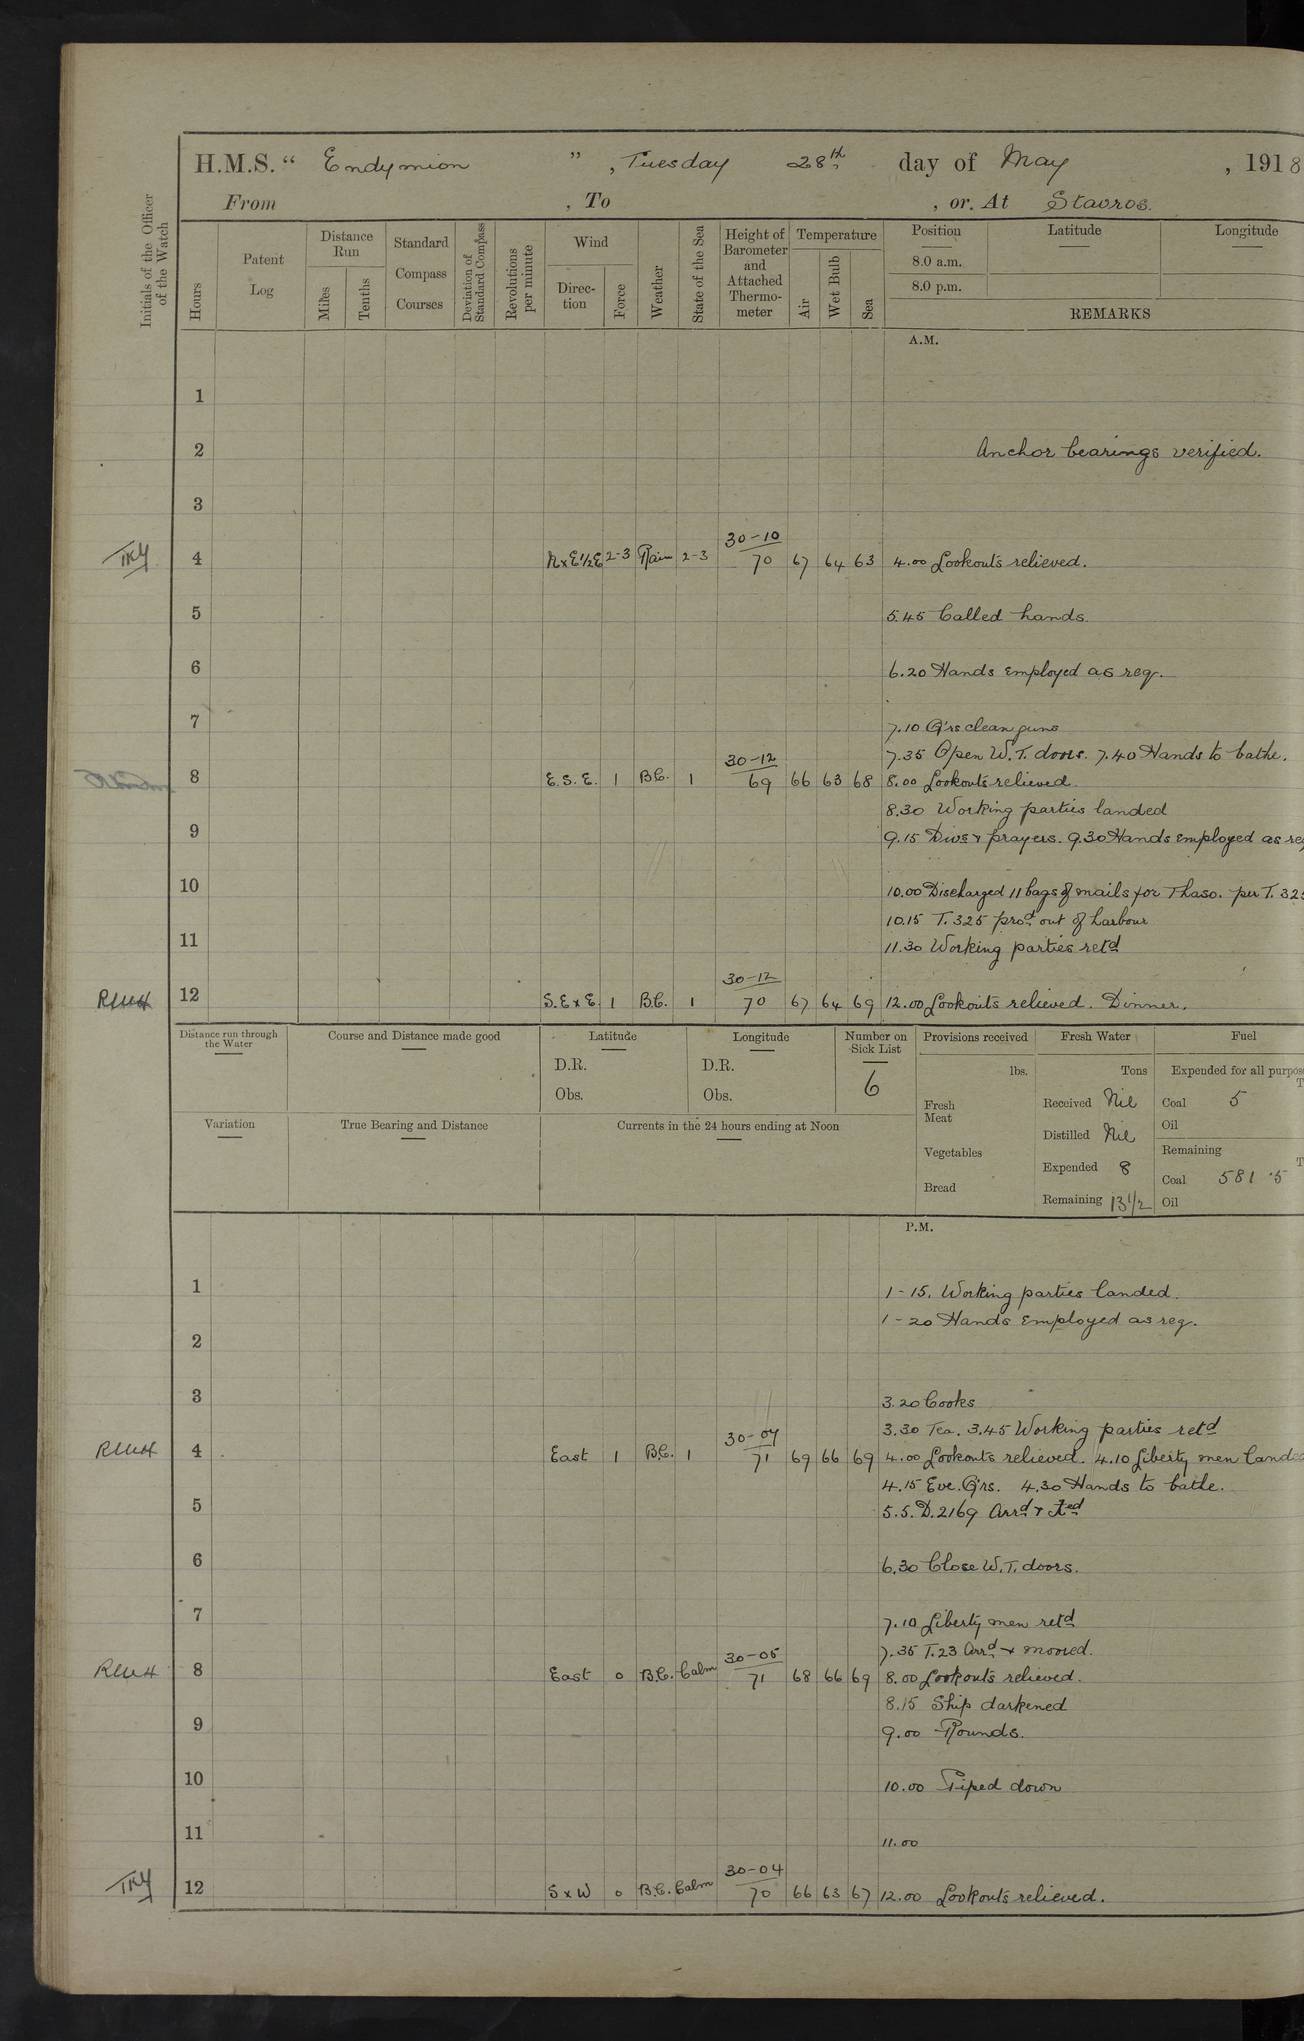 H.M.S. “ Endymion ”, Tuesday 28th day of May, 1918
From , To , or At Stavros.
Initials of the Officer of the Watch
Hours
Patent Log
Distance Run
Miles
Tenths
Standard Compass Courses
Deviation of Standard Compass
Revolutions per minute
Wind
Direc-tion
Force
Weather
State of the Sea
Height of Barometer and Attached Thermo-meter
Temperature
Air
Wet Bulb
Sea
Position
8.0 a.m.
8.0 p.m.
Latitude
Longitude
REMARKS
A.M.
1
2 Anchor bearings verified.
3
30-10
TKY 4 N x E½E 2-3 Rain 2-3 70 67 64 63 4.00 Lookouts relieved.
5 5.45 Called hands.
6 6.20 Hands employed as req.
7 7.10 Q'rs clean guns
30-12 7.35 Open W.T. doors. 7.40 Hands to bathe.
8 E.S.E. 1 B.C. 1 69 66 63 68 8.00 Lookouts relieved.
8.30 Working parties landed
9 9.15 Divs & prayers. 9.30 Hands employed as req
10 10.00 Discharged 11 bags of mails for Thaso. per T. 325
10.15 T. 325 procd out of harbour
11 11.30 Working parties retd
30-12
12 S.E x E. 1 B.C. 1 70 67 64 69 12.00 Lookouts relieved. Dinner.
Distance run through the Water
Course and Distance made good
Latitude
D.R.
Obs.
Longitude
D.R.
Obs.
Number on Sick List
6
Provisions received
lbs.
Fresh Meat
Vegetables
Bread
Fresh Water
Tons
Received Nil
Distilled Nil
Expended 8
Remaining 13½
Fuel
Expended for all purpos
T
Coal 5
Oil
Remaining
T
Coal 581.5
Oil
Variation
True Bearing and Distance
Currents in the 24 hours ending at Noon
P.M.
1 1-15. Working parties landed.
1-20 Hands employed as req.
2
3 3.20 Cooks
30-07 3.30 Tea. 3.45 Working parties retd
4 East 1 B.C. 1 71 69 66 69 4.00 Lookouts relieved. 4.10 Liberty men landed
4.15 Eve. Q'rs. 4.30 Hands to bathe.
5 5.5. D.2169 Arrd &
6 6.30 Close W.T. doors.
7 7.10 Liberty men retd
30-05 7.35 T.23 Arrd & moored.
8 East 0 B.C. Calm 71 68 66 69 8.00 Lookouts relieved.
8.15 Ship darkened
9 9.00 Rounds.
10 10.00 Piped down
11 11.00
30-04
TKY 12 S x W 0 B.C. Calm 70 66 63 67 12.00 Lookouts relieved.